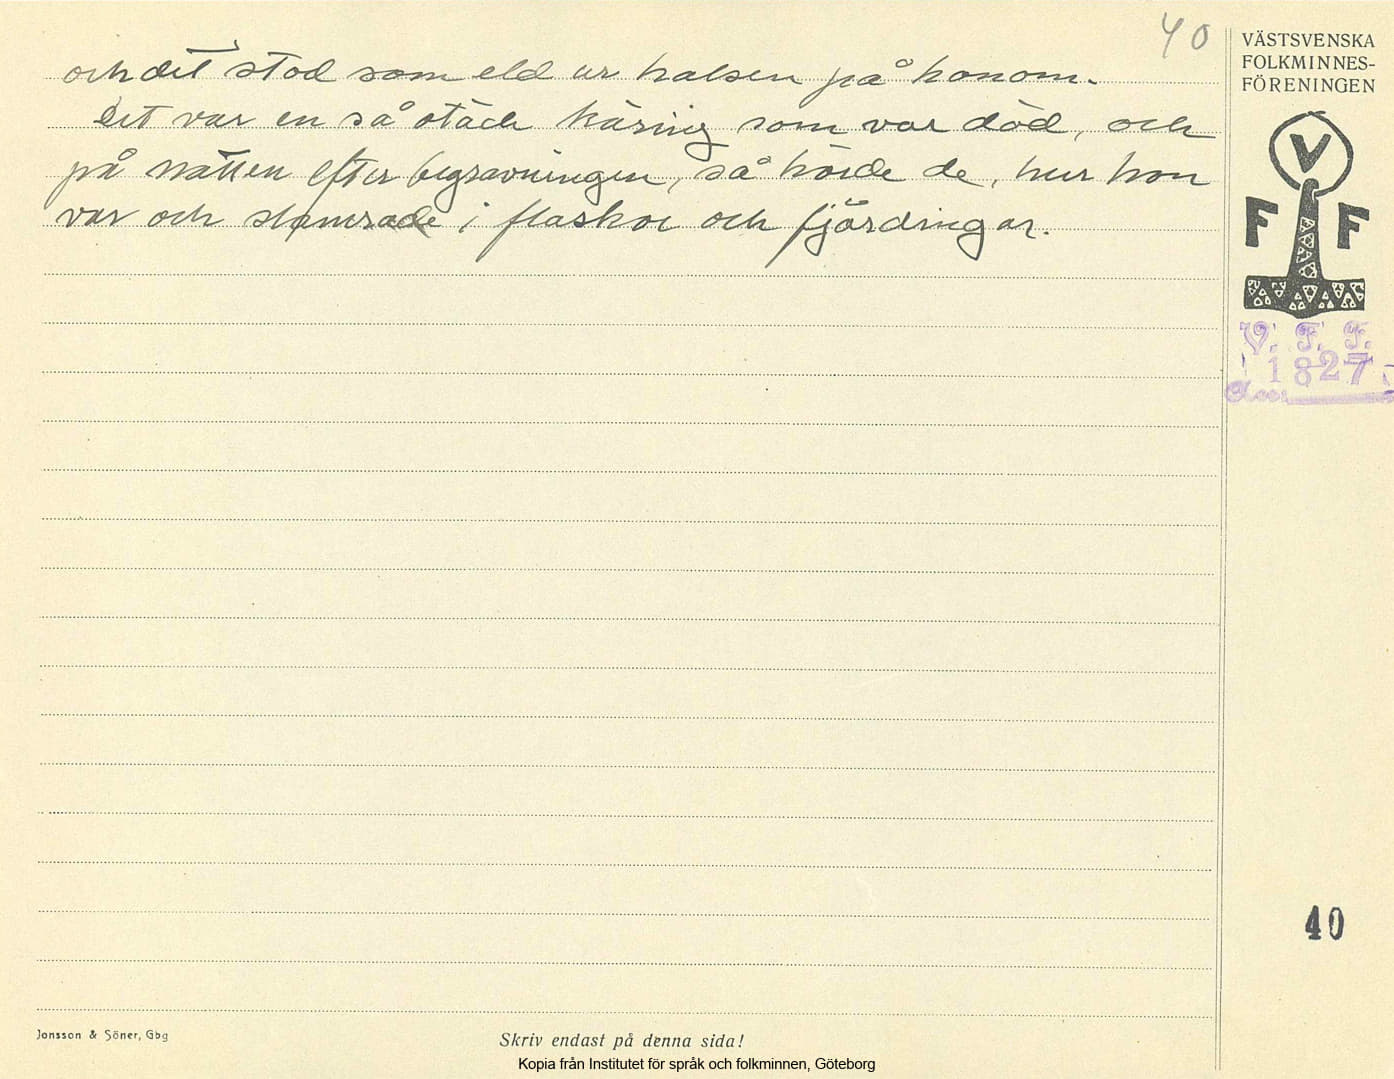 40
och det stod som eld ur halsen på honom.
Det var en så otäck käring som var död, och
på natten efter begravningen, så hörde de, hur hon
var och slamrade i flaskor och fjärdingar.
VÄSTSVENSKA
FOLKMINNES-
FÖRENINGEN
V
F F
V. F. F.
1827
40
Jonsson & Söner, Gbg
Skriv endast på denna sida!
Kopia från Institutet för språk och folkminnen, Göteborg